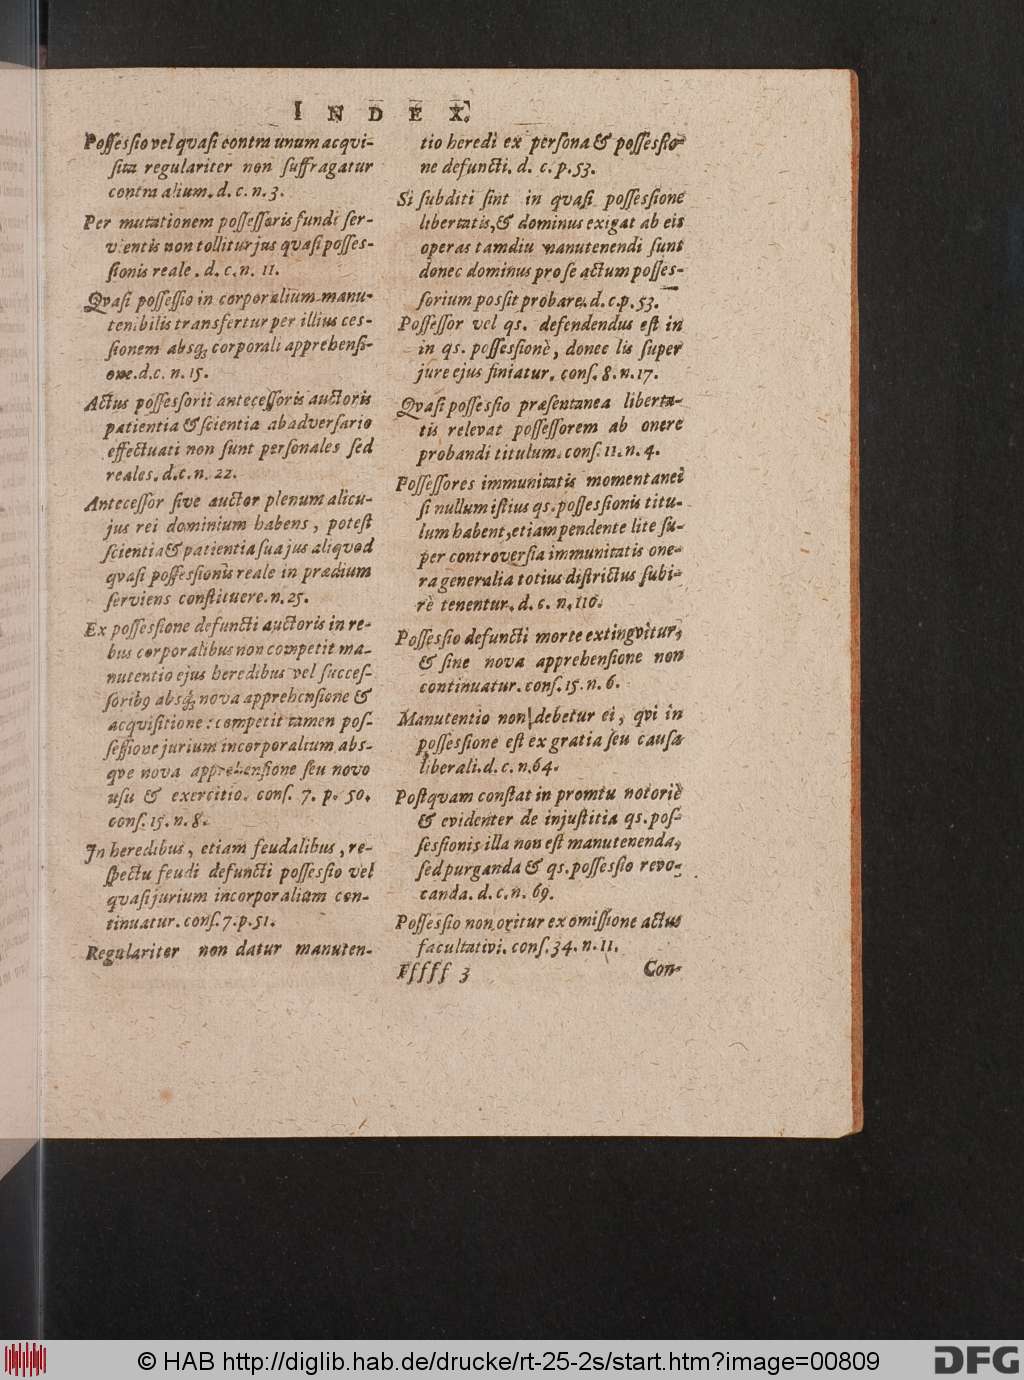 INDEX.
Possessio vel qvasi contra unum acqvi-
sita regulariter non suffragatur
contra alium. d. c. n. 3.
Per mutationem possessoris fundi ser-
vientis non tollitur jus qvasi posses-
sionis reale. d. c. n. 11.
Qvasi possessio in corporalium manu-
tenibilis transfertur per illius ces-
sionem absq; corporali apprehensi-
one. d. c. n. 15.
Actus possessorii antecessoris auctoris
patientia & scientia ab adversario
effectuati non sunt personales sed
reales. d. c. n. 22.
Antecessor sive auctor plenum alicu-
jus rei dominium habens, potest
scientia & patientia sua jus aliqvod
qvasi possessionis reale in prædium
serviens constituere. n. 25.
Ex possessione defuncti auctoris in re-
bus corporalibus non competit ma-
nutentio ejus heredibus vel succes-
soribꝰ absq; nova apprehensione &
acqvisitione: competit tamen pos-
sessione jurium incorporalium abs-
qve nova apprehensione seu novo
usu & exercitio. cons. 7. p. 50.
cons. 15. n. 8.
In heredibus, etiam feudalibus, re-
spectu feudi defuncti possessio vel
qvasi jurium incorporalium con-
tinuatur. cons. 7. p. 51.
Regulariter non datur manuten-
tio heredi ex persona & possessio-
ne defuncti. d. c. p. 53.
Si subditi sint in qvasi possessione
libertatis, & dominus exigat ab eis
operas tamdiu manutenendi sunt
donec dominus pro se actum posses-
sorium possit probare. d. c. p. 53.
Possessor vel qs. defendendus est in
in qs. possessionè, donec lis super
jure ejus finiatur. cons. 8. n. 17.
Qvasi possessio præsentanea liberta-
tis relevat possessorem ab onere
probandi titulum. cons. 11. n. 4.
Possessores immunitatis momentanei
si nullum istius qs. possessionis titu-
lum habent, etiam pendente lite su-
per controversia immunitatis one-
ra generalia totius districtus subi-
rè tenentur. d. c. n. 110.
Possessio defuncti morte extingvitur,
& sine nova apprehensione non
continuatur. cons. 15. n. 6.
Manutentio non debetur ei, qvi in
possessione est ex gratia seu causa
liberali. d. c. n. 64.
Postqvam constat in promtu notoriè
& evidenter de injustitia qs. pos-
sessionis illa non est manutenenda,
sed purganda & qs. possessio revo-
canda. d. c. n. 69.
Possessio non oritur ex omissione actus
facultativi. cons. 34. n. 11.
Fffff 3 Con-
© HAB http://diglib.hab.de/drucke/rt-25-2s/start.htm?image=00809
DFG